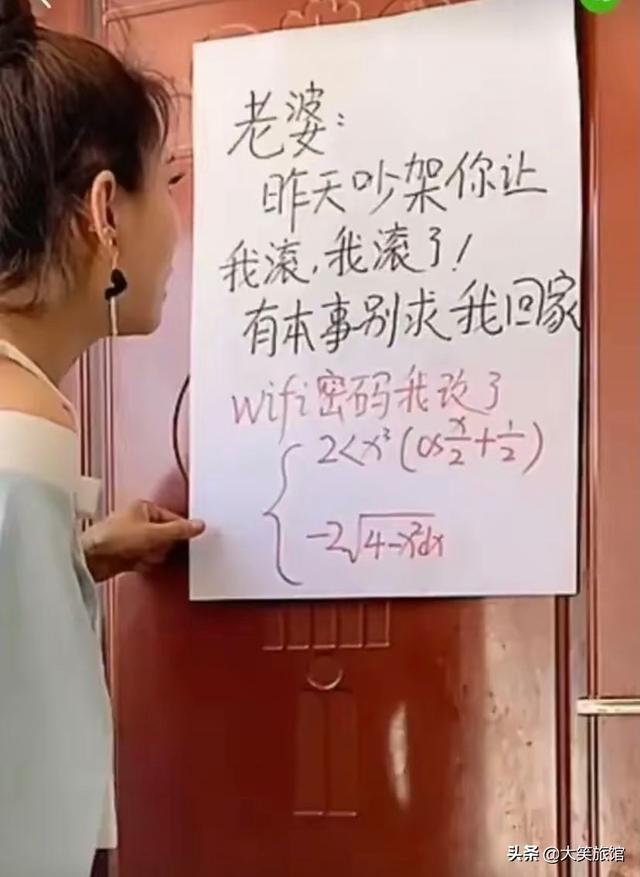 老婆:
昨天吵架你让
我滚,我滚了!
有本事别求我回家
wifi密码我改了
2<x³(os x/2+1/2)
-2√4-x²dx
头条 @大笑旅馆